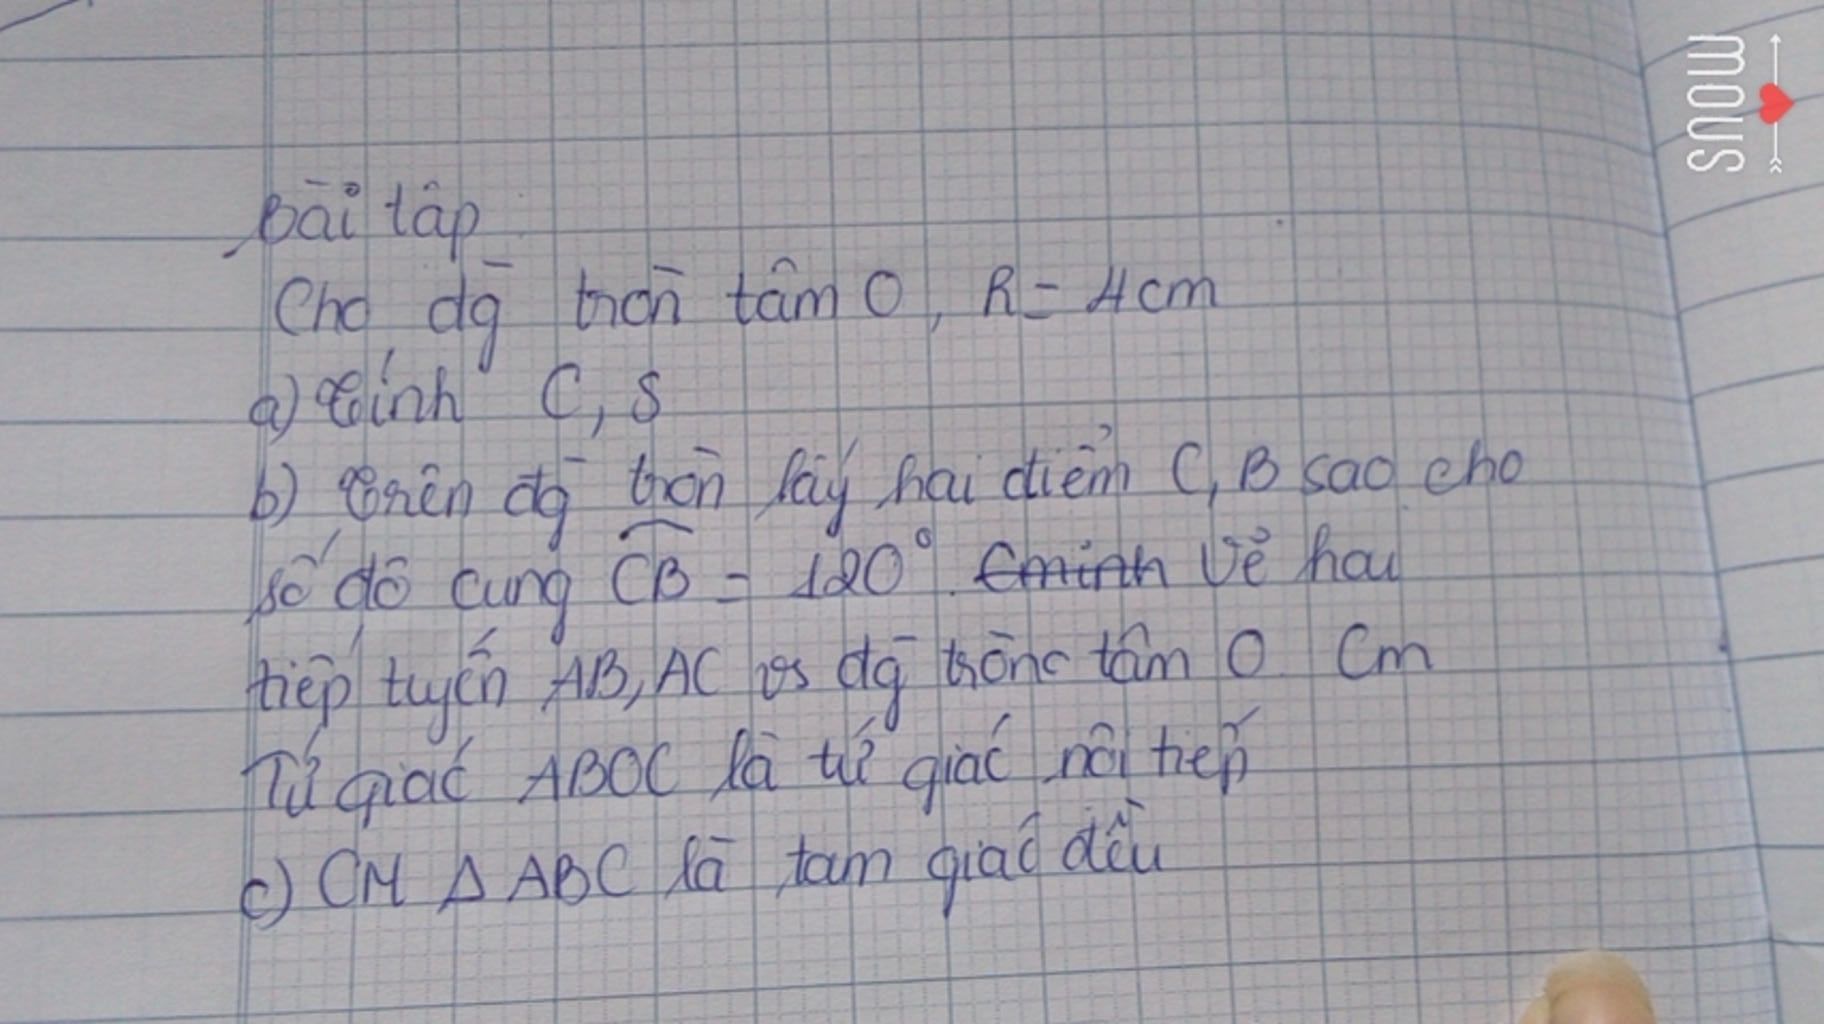 Bài tập
Cho đg tròn tâm O, R = 4cm
a) Tính C, S
b) Trên đg tròn lấy hai điểm C, B sao cho
số đo cung CB = 120°. Cminh Vẽ hai
tiếp tuyến AB, AC vs đg tròn tâm O. Cm
Tứ giác ABOC là tứ giác nội tiếp
c) CM Δ ABC là tam giác đều
SNOW